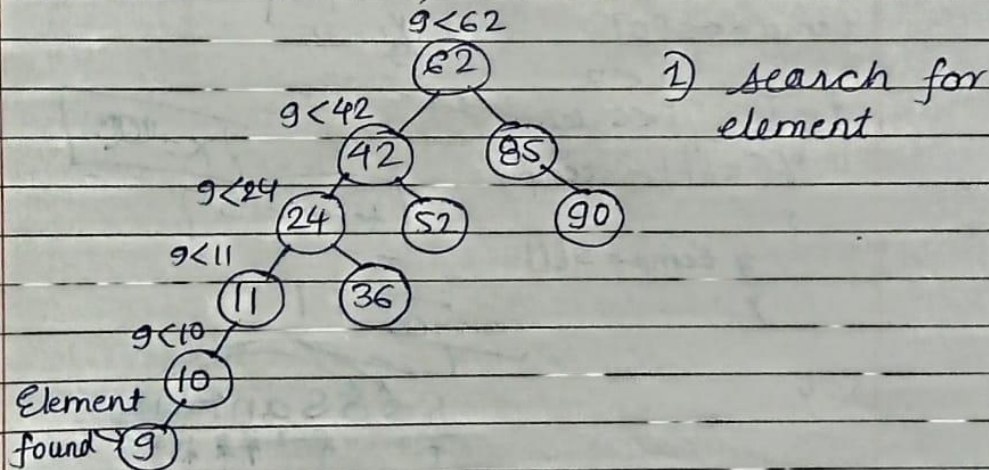 9<62
62
1) search for
element
9<42
42
85
9<24
24
52
90
9<11
11
36
9<10
10
Element
found 9